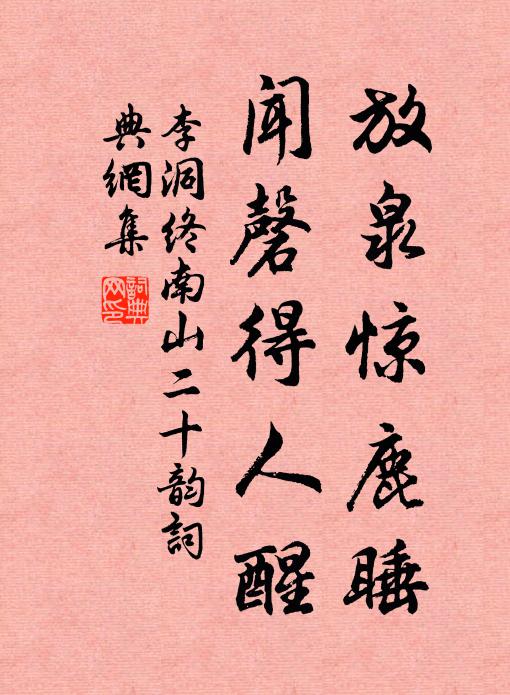 放泉惊鹿睡
闻磬得人醒
李洞终南山二十韵词
典網集
詞典
网印